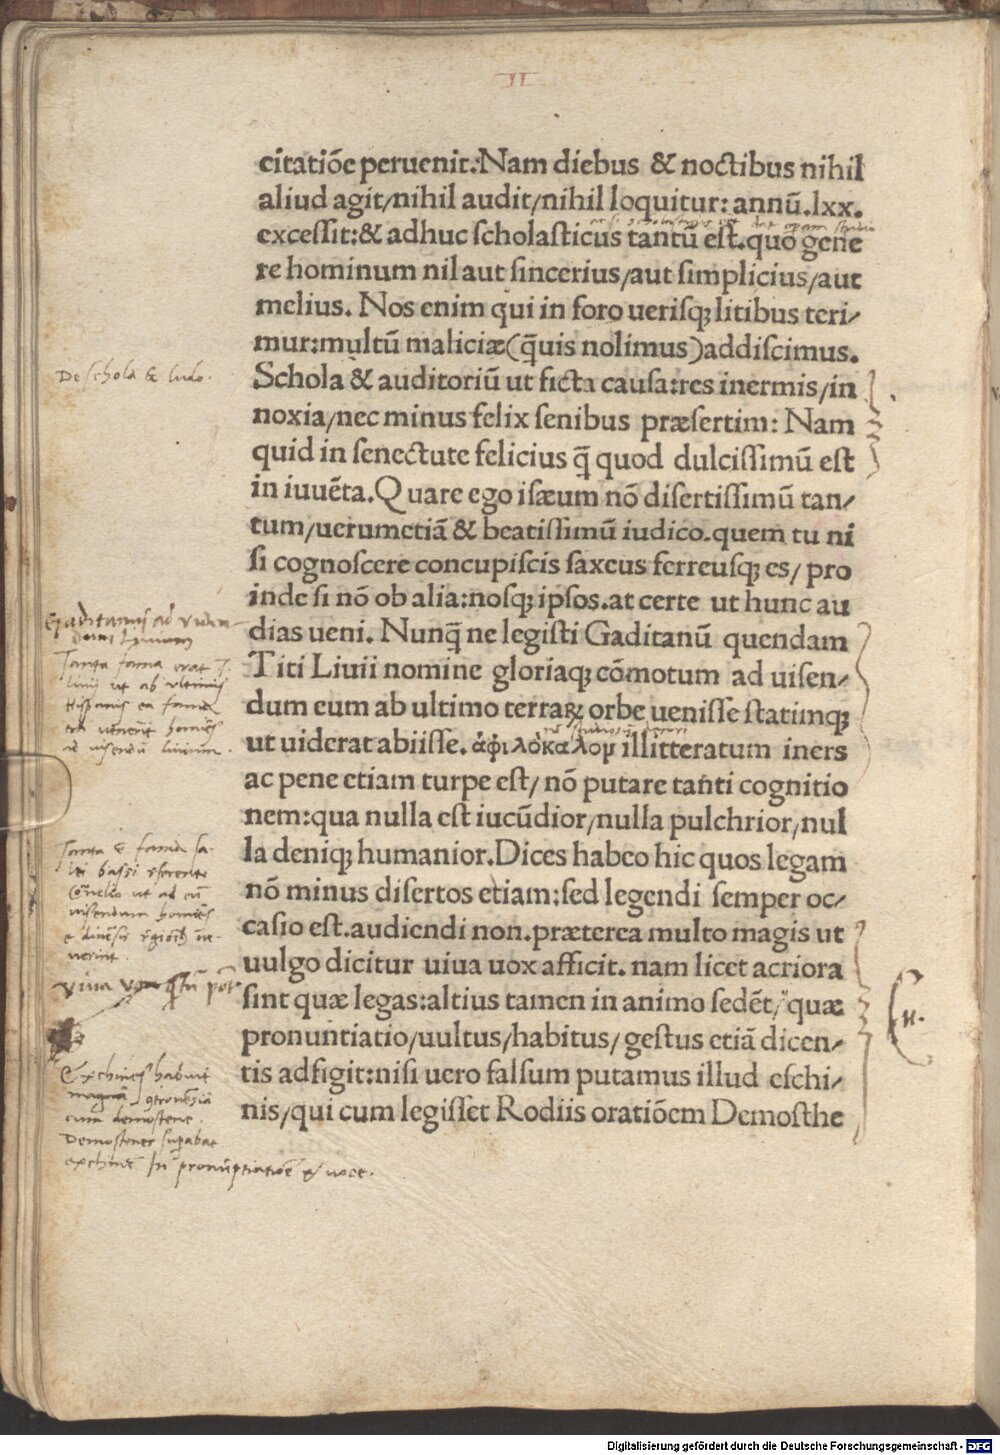 II
citatiõe peruenit:Nam diebus & noctibus nihil
aliud agit/nihil audit/nihil loquitur: annũ.lxx.
excessit:& adhuc scholasticus tantũ est.quo gene
re hominum nil aut sincerius/aut simplicius/aut
melius. Nos enim qui in foro uerisqꝫ litibus teri/
mur:multũ maliciæ(q̃uis nolimus)addiscimus.
De schola & ludo.
Schola & auditoriũ ut ficta causa:res inermis/in
noxia/nec minus felix senibus præsertim: Nam
quid in senectute felicius q̃ quod dulcissimũ est
in iuuẽta.Quare ego isæum nõ disertissimũ tan/
tum/uerumetiã & beatissimũ iudico.quem tu ni
si cognoscere concupiscis saxeus ferreusqꝫ es/ pro
inde si nõ ob alia:nosqꝫ ipsos.at certe ut hunc au
dias ueni. Nunq̃ ne legisti Gaditanũ quendam
Titi Liuii nomine gloriaqꝫ cõmotum ad uisen/
dum eum ab ultimo terraꝝ orbe uenisse statimqꝫ
ut uiderat abiisse. ἀφιλόκαλομ illitteratum iners
ac pene etiam turpe est/ nõ putare tanti cognitio
nem:qua nulla est iucũdior/nulla pulchrior/nul
la deniqꝫ humanior.Dices habeo hic quos legam
nõ minus disertos etiam:sed legendi semper oc/
casio est.audiendi non.præterea multo magis ut
uulgo dicitur uiua uox afficit. nam licet acriora
sint quæ legas:altius tamen in animo sedẽt/quæ
pronuntiatio/uultus/habitus/gestus etiã dicen/
tis adfigit:nisi uero falsum putamus illud eschi/
nis/qui cum legisset Rodiis oratiõem Demosthe
Tanta fama erat T.
liuij ut ab ultimis
Hispanis ea fama
uenerit homines
ad uisendũ liuium.
ut ad eũ
uisendum homines
uiua uox
Eschines habuit
cum demostene.
Demostenes supabat
eschinẽ In pronũptiatiõe & uoce.
Digitalisierung gefördert durch die Deutsche Forschungsgemeinschaft - DFG